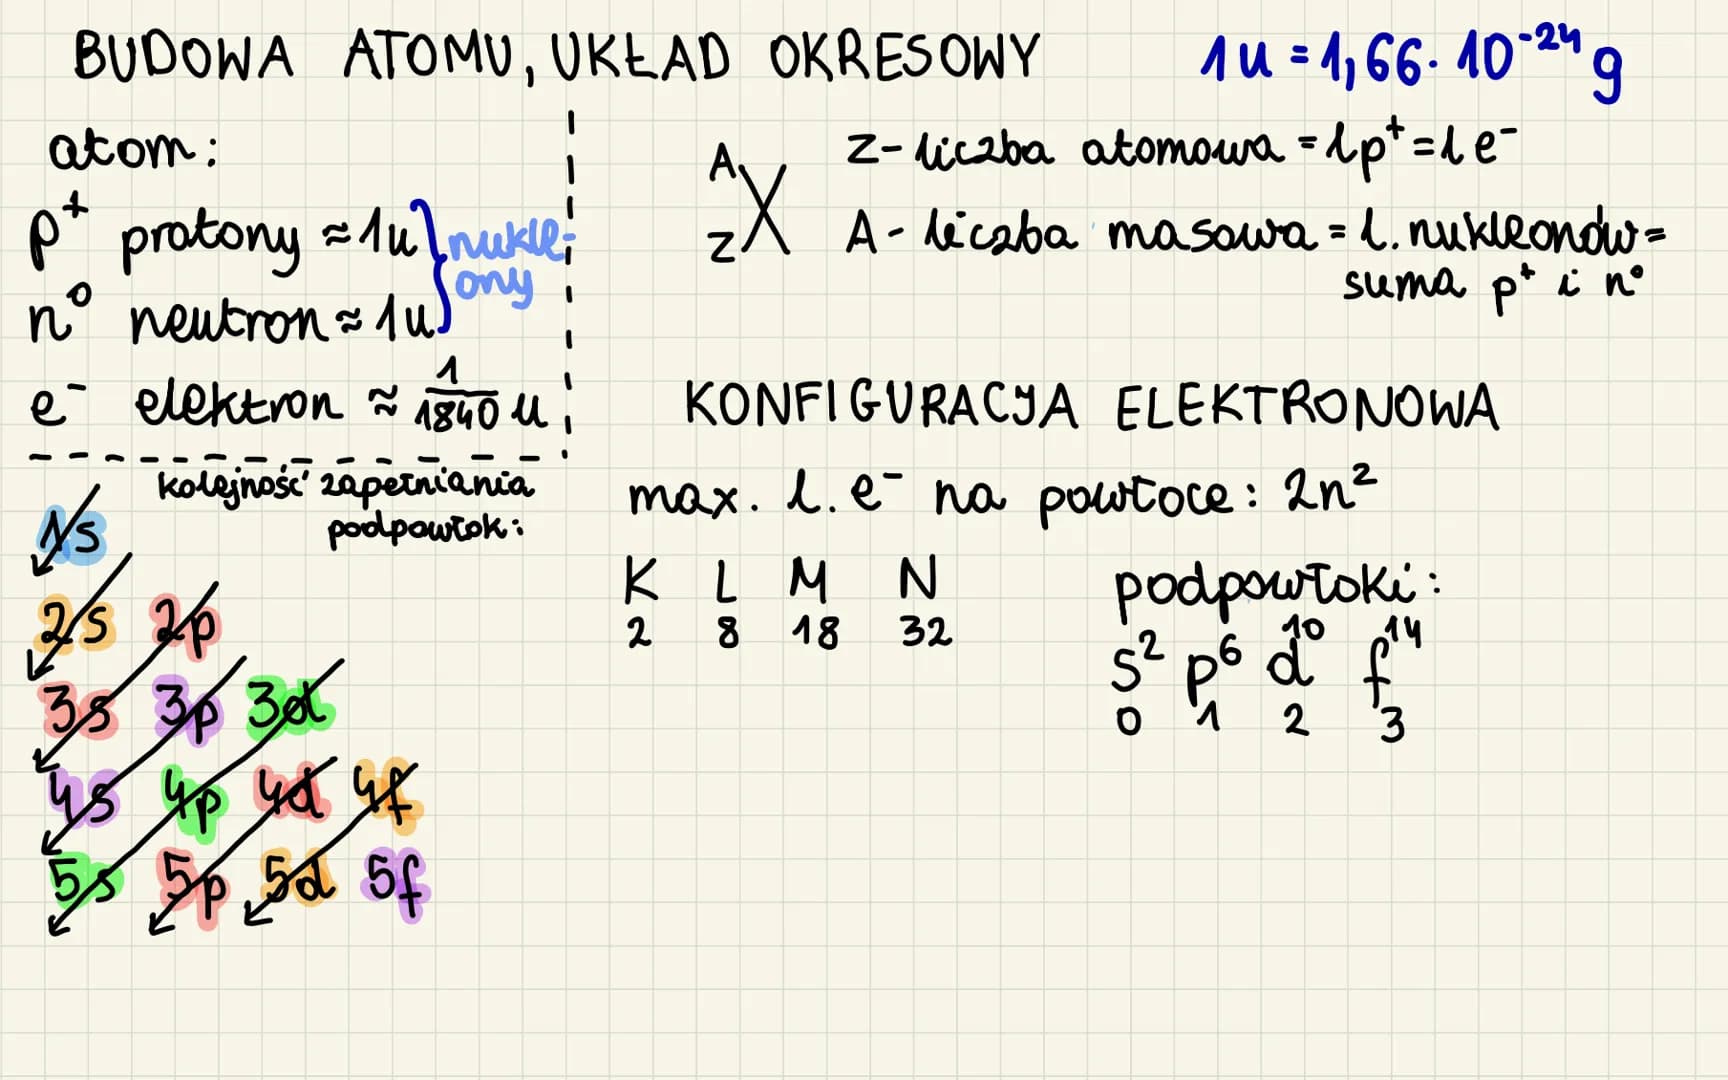 BUDOWA ATOMU, UKŁAD OKRESOWY
1u = 1,66 · 10⁻²⁴ g
atom:
p⁺ protony ≈ 1u
n⁰ neutron ≈ 1u
nukle-
ony
e⁻ elektron ≈ 1/1840 u
A
Z
X
Z - liczba atomowa = l p⁺ = l e⁻
A - liczba masowa = l. nukleonów =
suma p⁺ i n⁰
kolejność zapełniania
podpowłok:
1s
2s 2p
3s 3p 3d
4s 4p 4d 4f
5s 5p 5d 5f
KONFIGURACJA ELEKTRONOWA
max. l. e⁻ na powłoce: 2n²
K L M N
2 8 18 32
podpowłoki:
s² p⁶ d¹⁰ f¹⁴
0 1 2 3